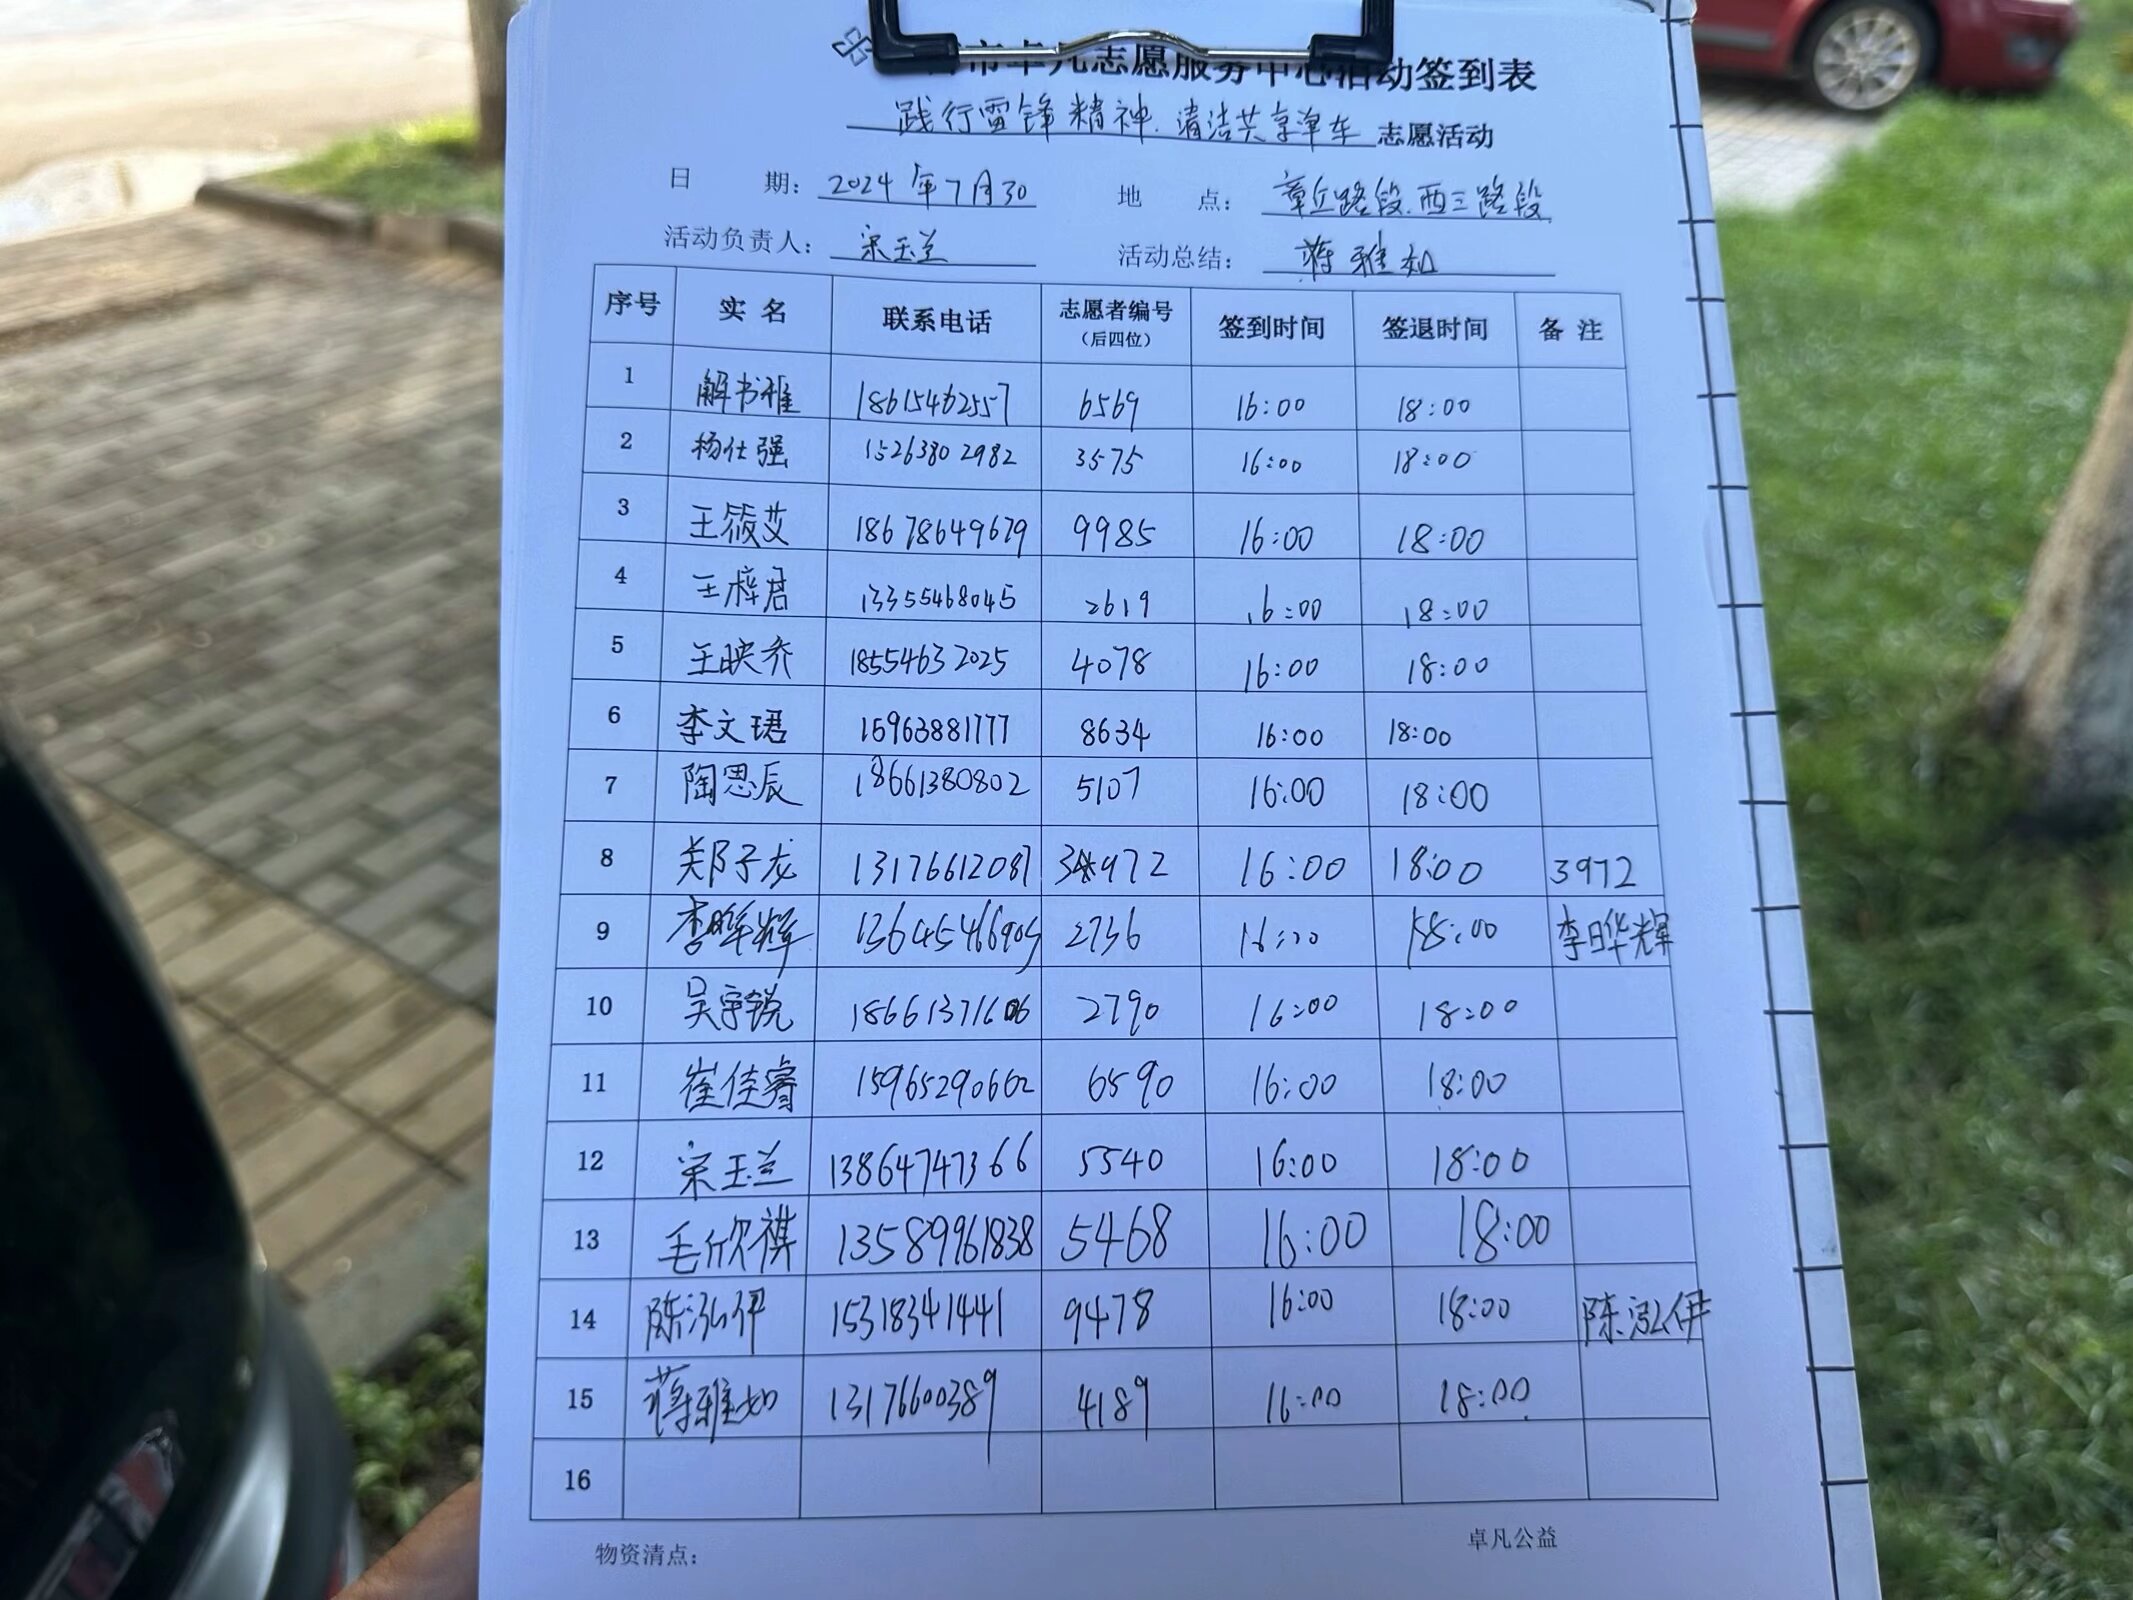 市卓凡志愿服务中心活动签到表
践行雷锋精神.清洁共享单车 志愿活动
日 期: 2024年7月30 地 点: 章丘路段.西三路段
活动负责人: 宋玉兰 活动总结: 蒋雅如
序号 实名 联系电话 志愿者编号(后四位) 签到时间 签退时间 备注
1 解书雅 18615462557 6569 16:00 18:00
2 杨仕强 15263802982 3575 16:00 18:00
3 王筱艾 18678649679 9985 16:00 18:00
4 王梓君 13355468045 2619 16:00 18:00
5 王映乔 18554632025 4078 16:00 18:00
6 李文珺 15963881777 8634 16:00 18:00
7 陶思辰 18661380802 5107 16:00 18:00
8 郑子龙 13176612087 16:00 18:00 3972
9 李晔辉 13645466909 2736 16:00 18:00 李晔辉
10 吴宇锐 2790 16:00 18:00
11 崔佳睿 15965290662 6590 16:00 18:00
12 宋玉兰 13864747366 5540 16:00 18:00
13 毛欣祺 13589961838 5468 16:00 18:00
14 陈泓伊 15318341441 9478 16:00 18:00 陈泓伊
15 蒋雅如 13176600389 4189 16:00 18:00
16
物资清点: 卓凡公益